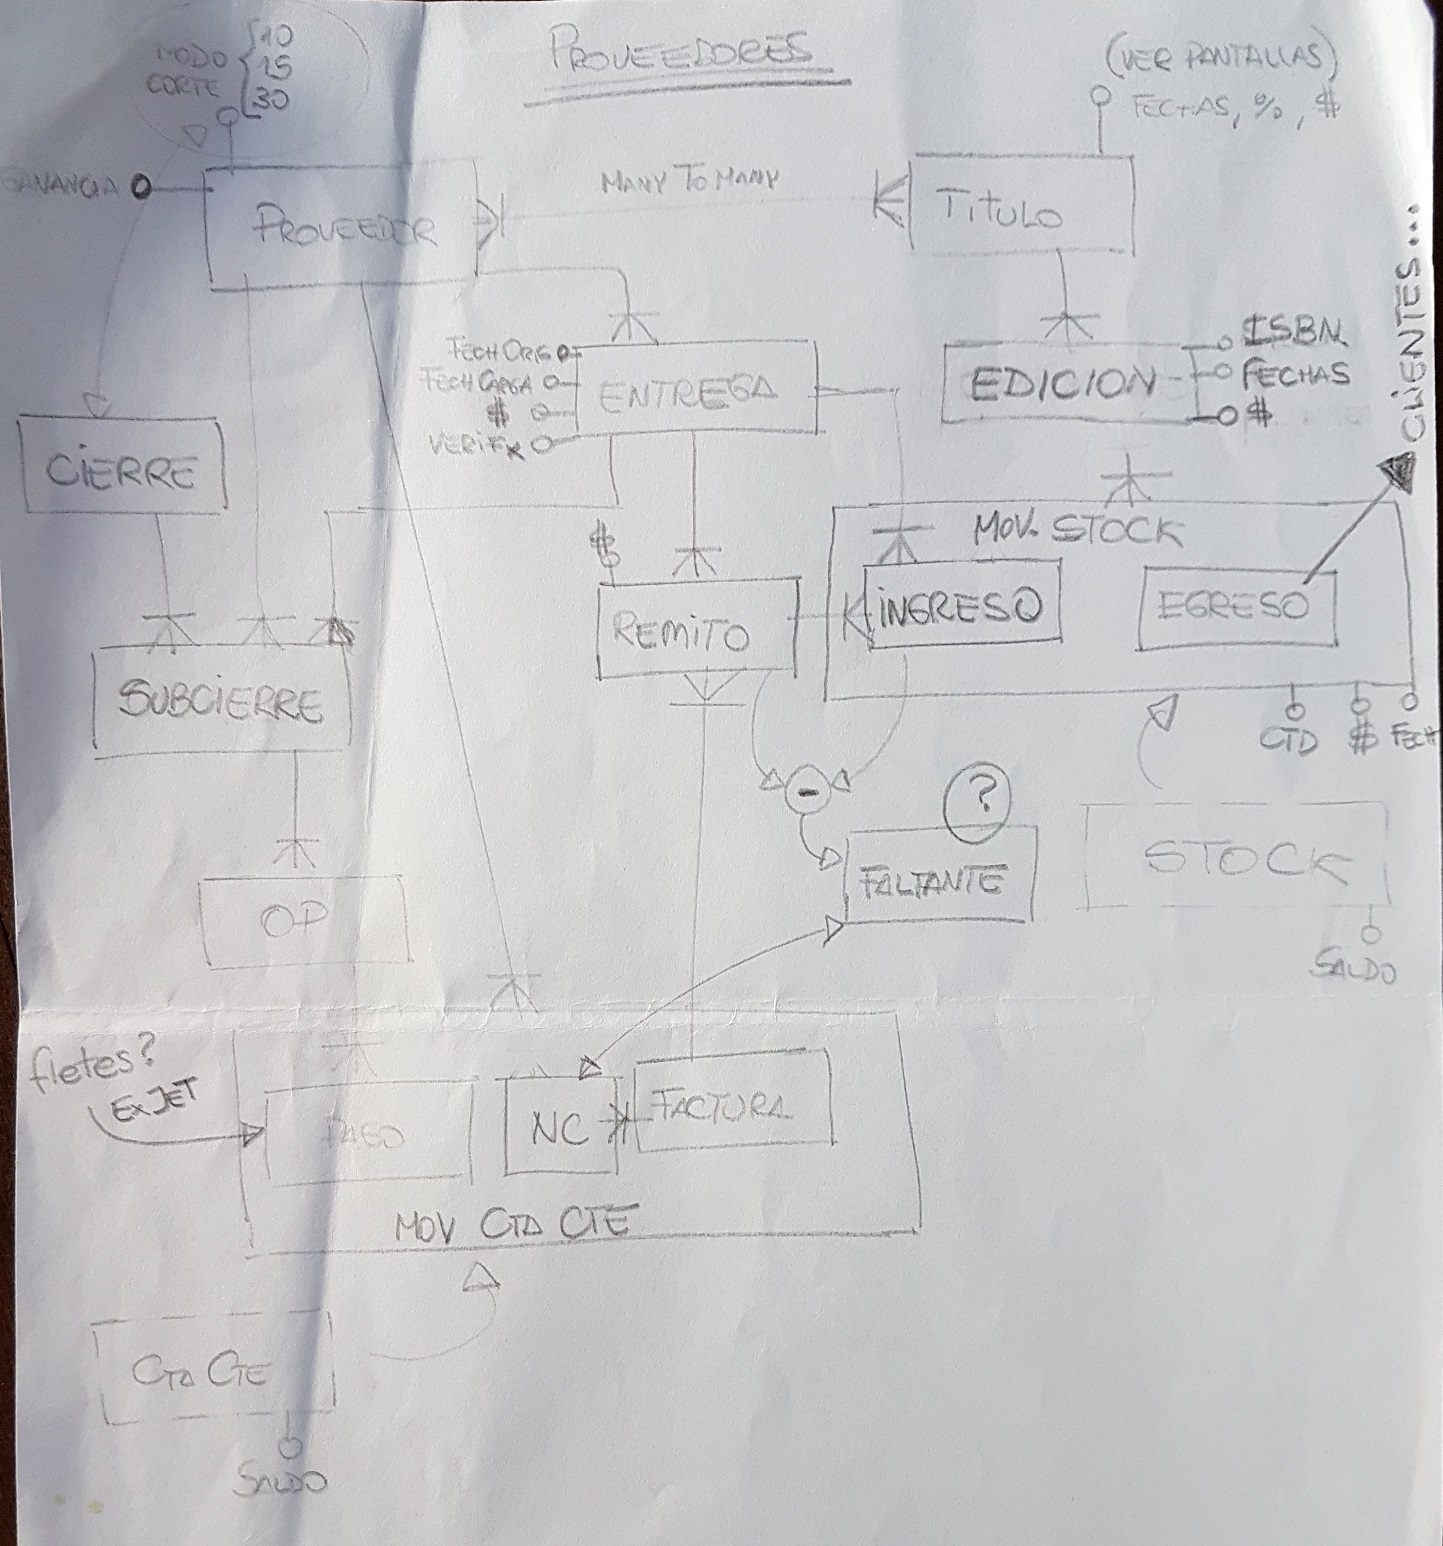 PROVEEDORES
MODO
CORTE
10
15
30
(VER PANTALLAS)
FECHAS, %, $
GANANCIA
PROVEEDOR
MANY TO MANY
TITULO
CLIENTES...
FECH ORIG
FECH CARGA
$
VERIFIX
ENTREGA
EDICION
ISBN
FECHAS
$
CIERRE
MOV. STOCK
$
REMITO
INGRESO
EGRESO
SUBCIERRE
CTD
$
FECH
-
?
FALTANTE
STOCK
OP
SALDO
fletes?
EXJET
PAGO
NC
FACTURA
MOV CTA CTE
CTA CTE
SALDO